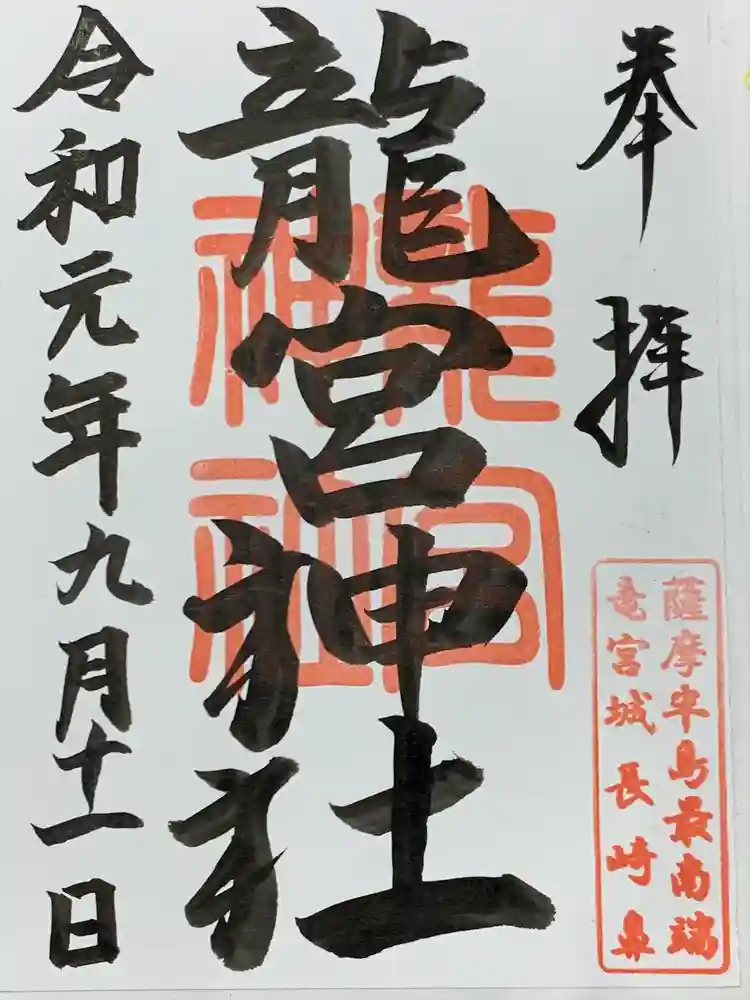 奉拝
薩摩半島最南端
竜宮城 長崎鼻
龍宮神社
龍宮
神社
令和元年九月十一日